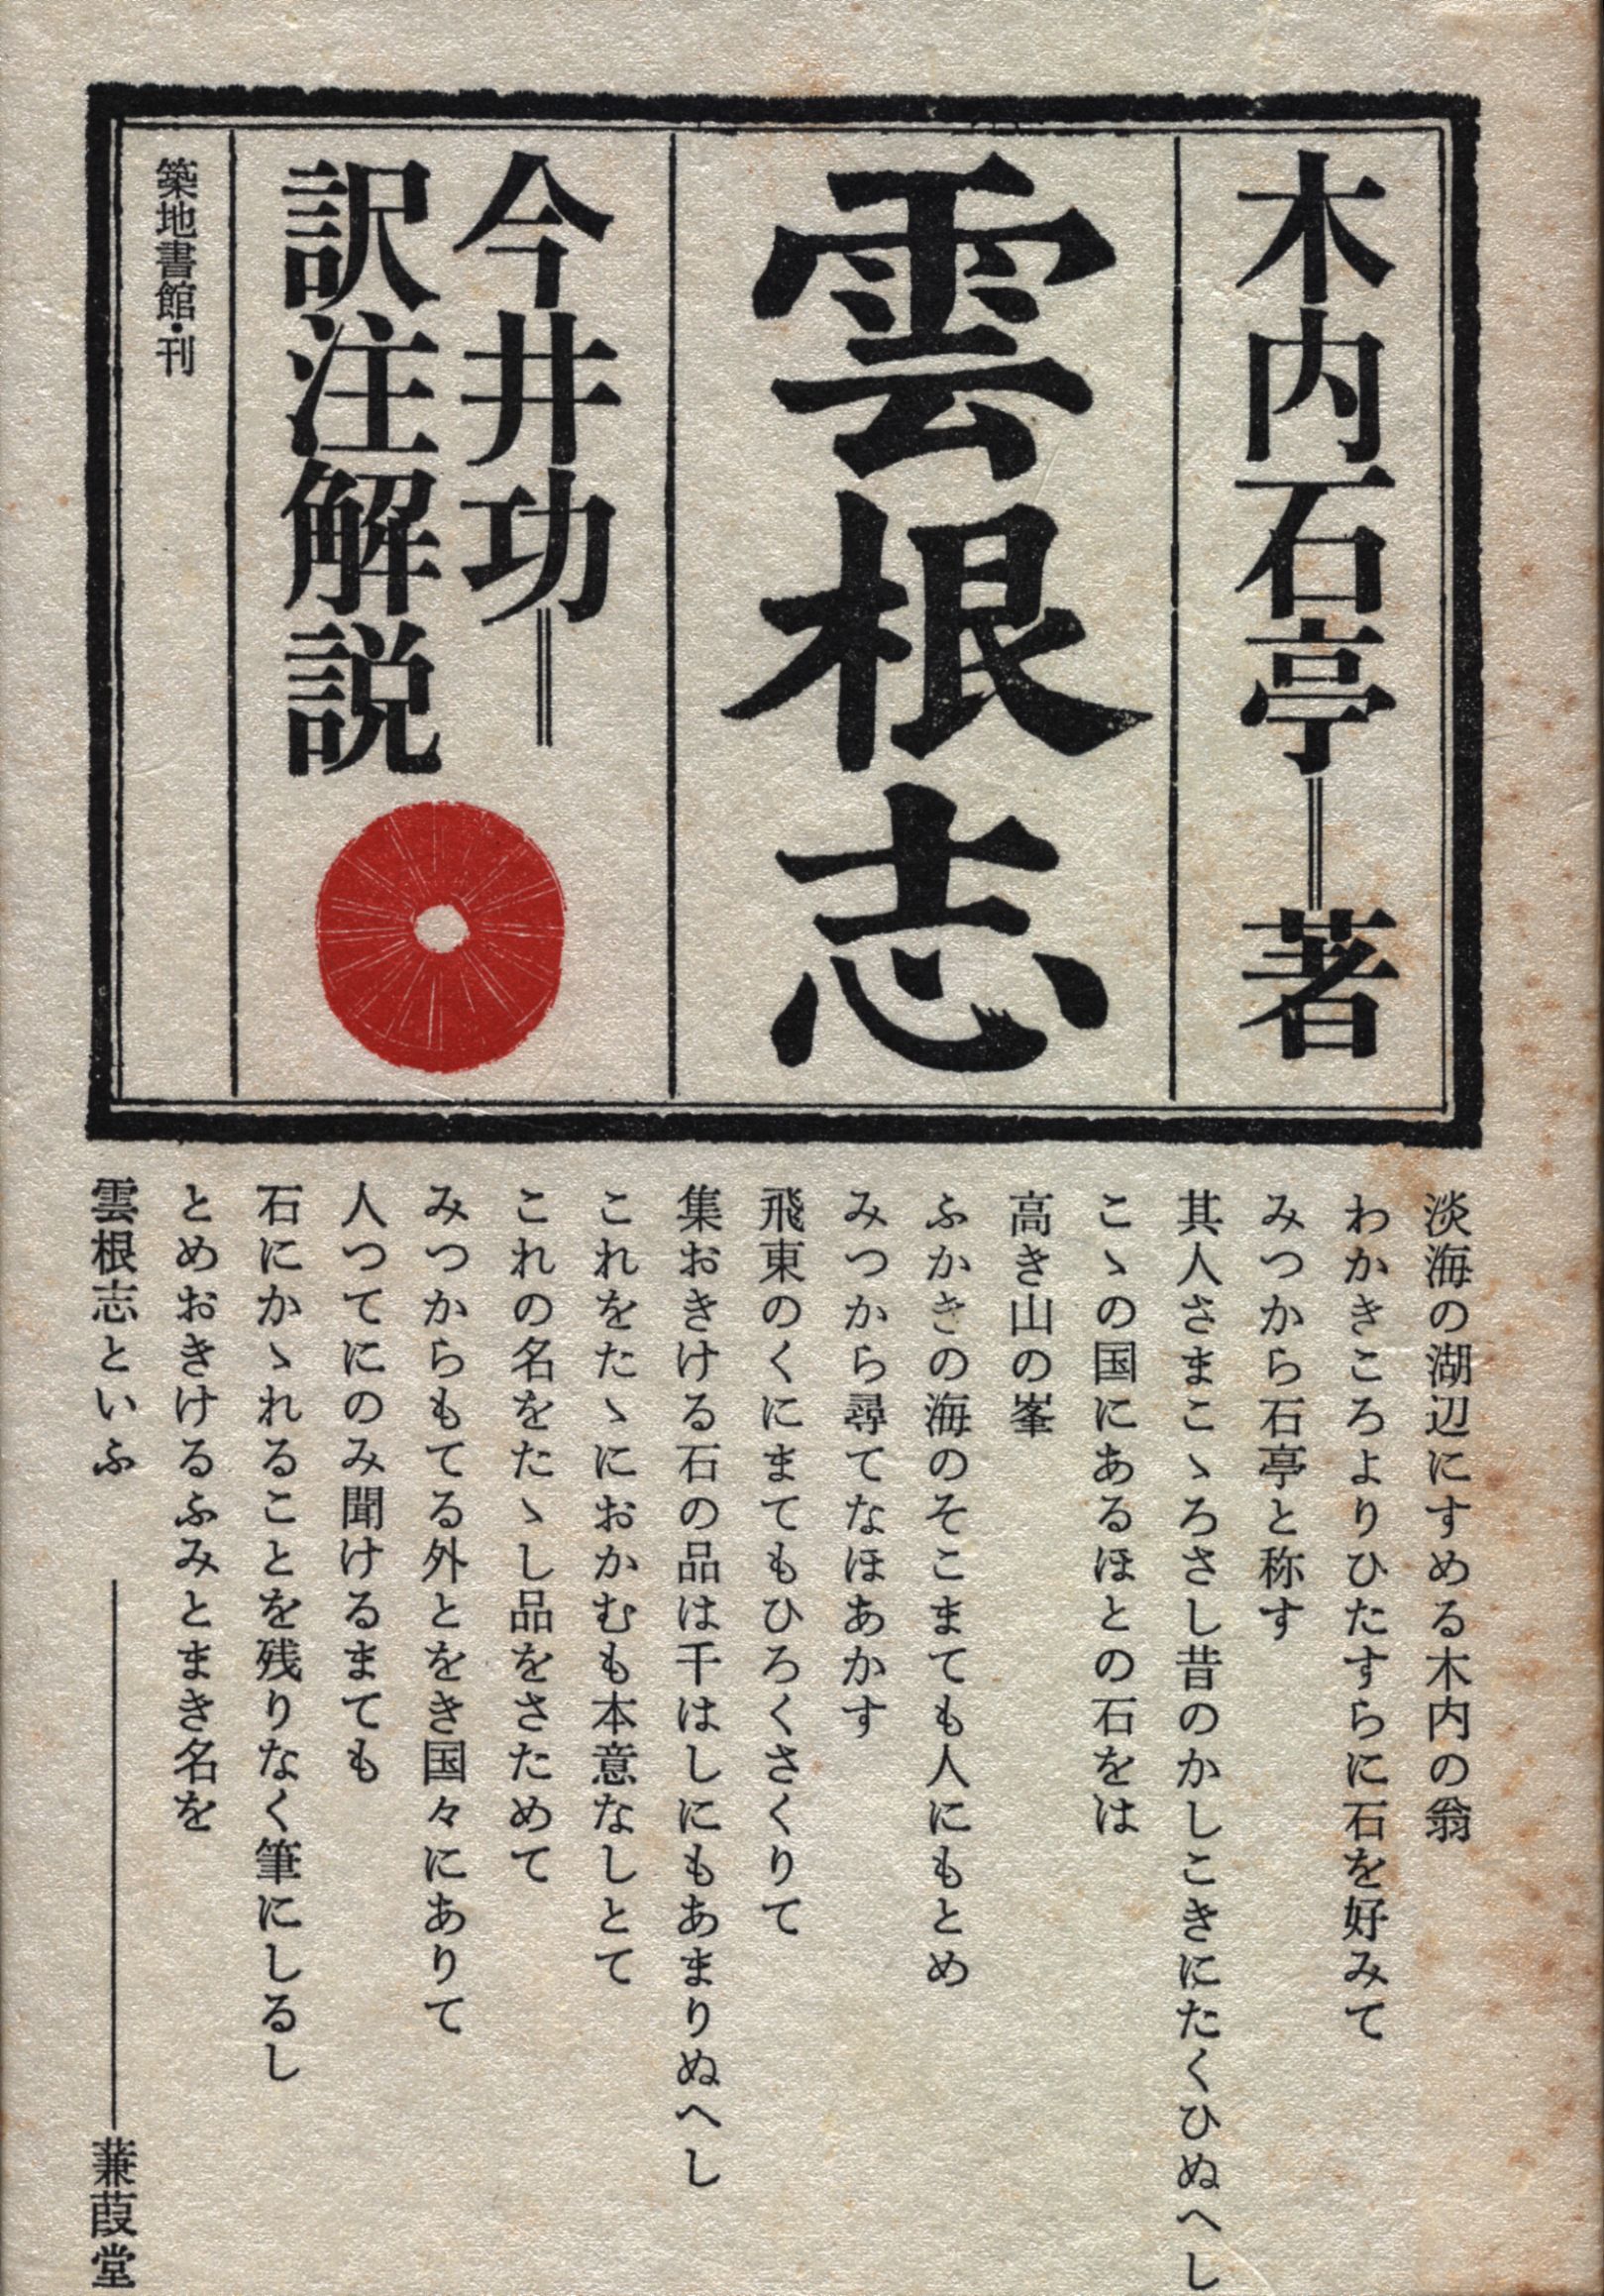 木内石亭＝著
雲根志
今井功＝
訳注解説
築地書館・刊
淡海の湖辺にすめる木内の翁
わかきころよりひたすらに石を好みて
みつから石亭と称す
其人さまこゝろさし昔のかしこきにたくひぬへし
こゝの国にあるほとの石をは
高き山の峯
ふかきの海のそこまても人にもとめ
みつから尋てなほあかす
飛東のくにまてもひろくさくりて
集おきける石の品は千はしにもあまりぬへし
これをたゝにおかむも本意なしとて
これの名をたゝし品をさためて
みつからもてる外とをき国々にありて
人つてにのみ聞けるまても
石にかゝれることを残りなく筆にしるし
とめおきけるふみとまき名を
雲根志といふ ――蒹葭堂